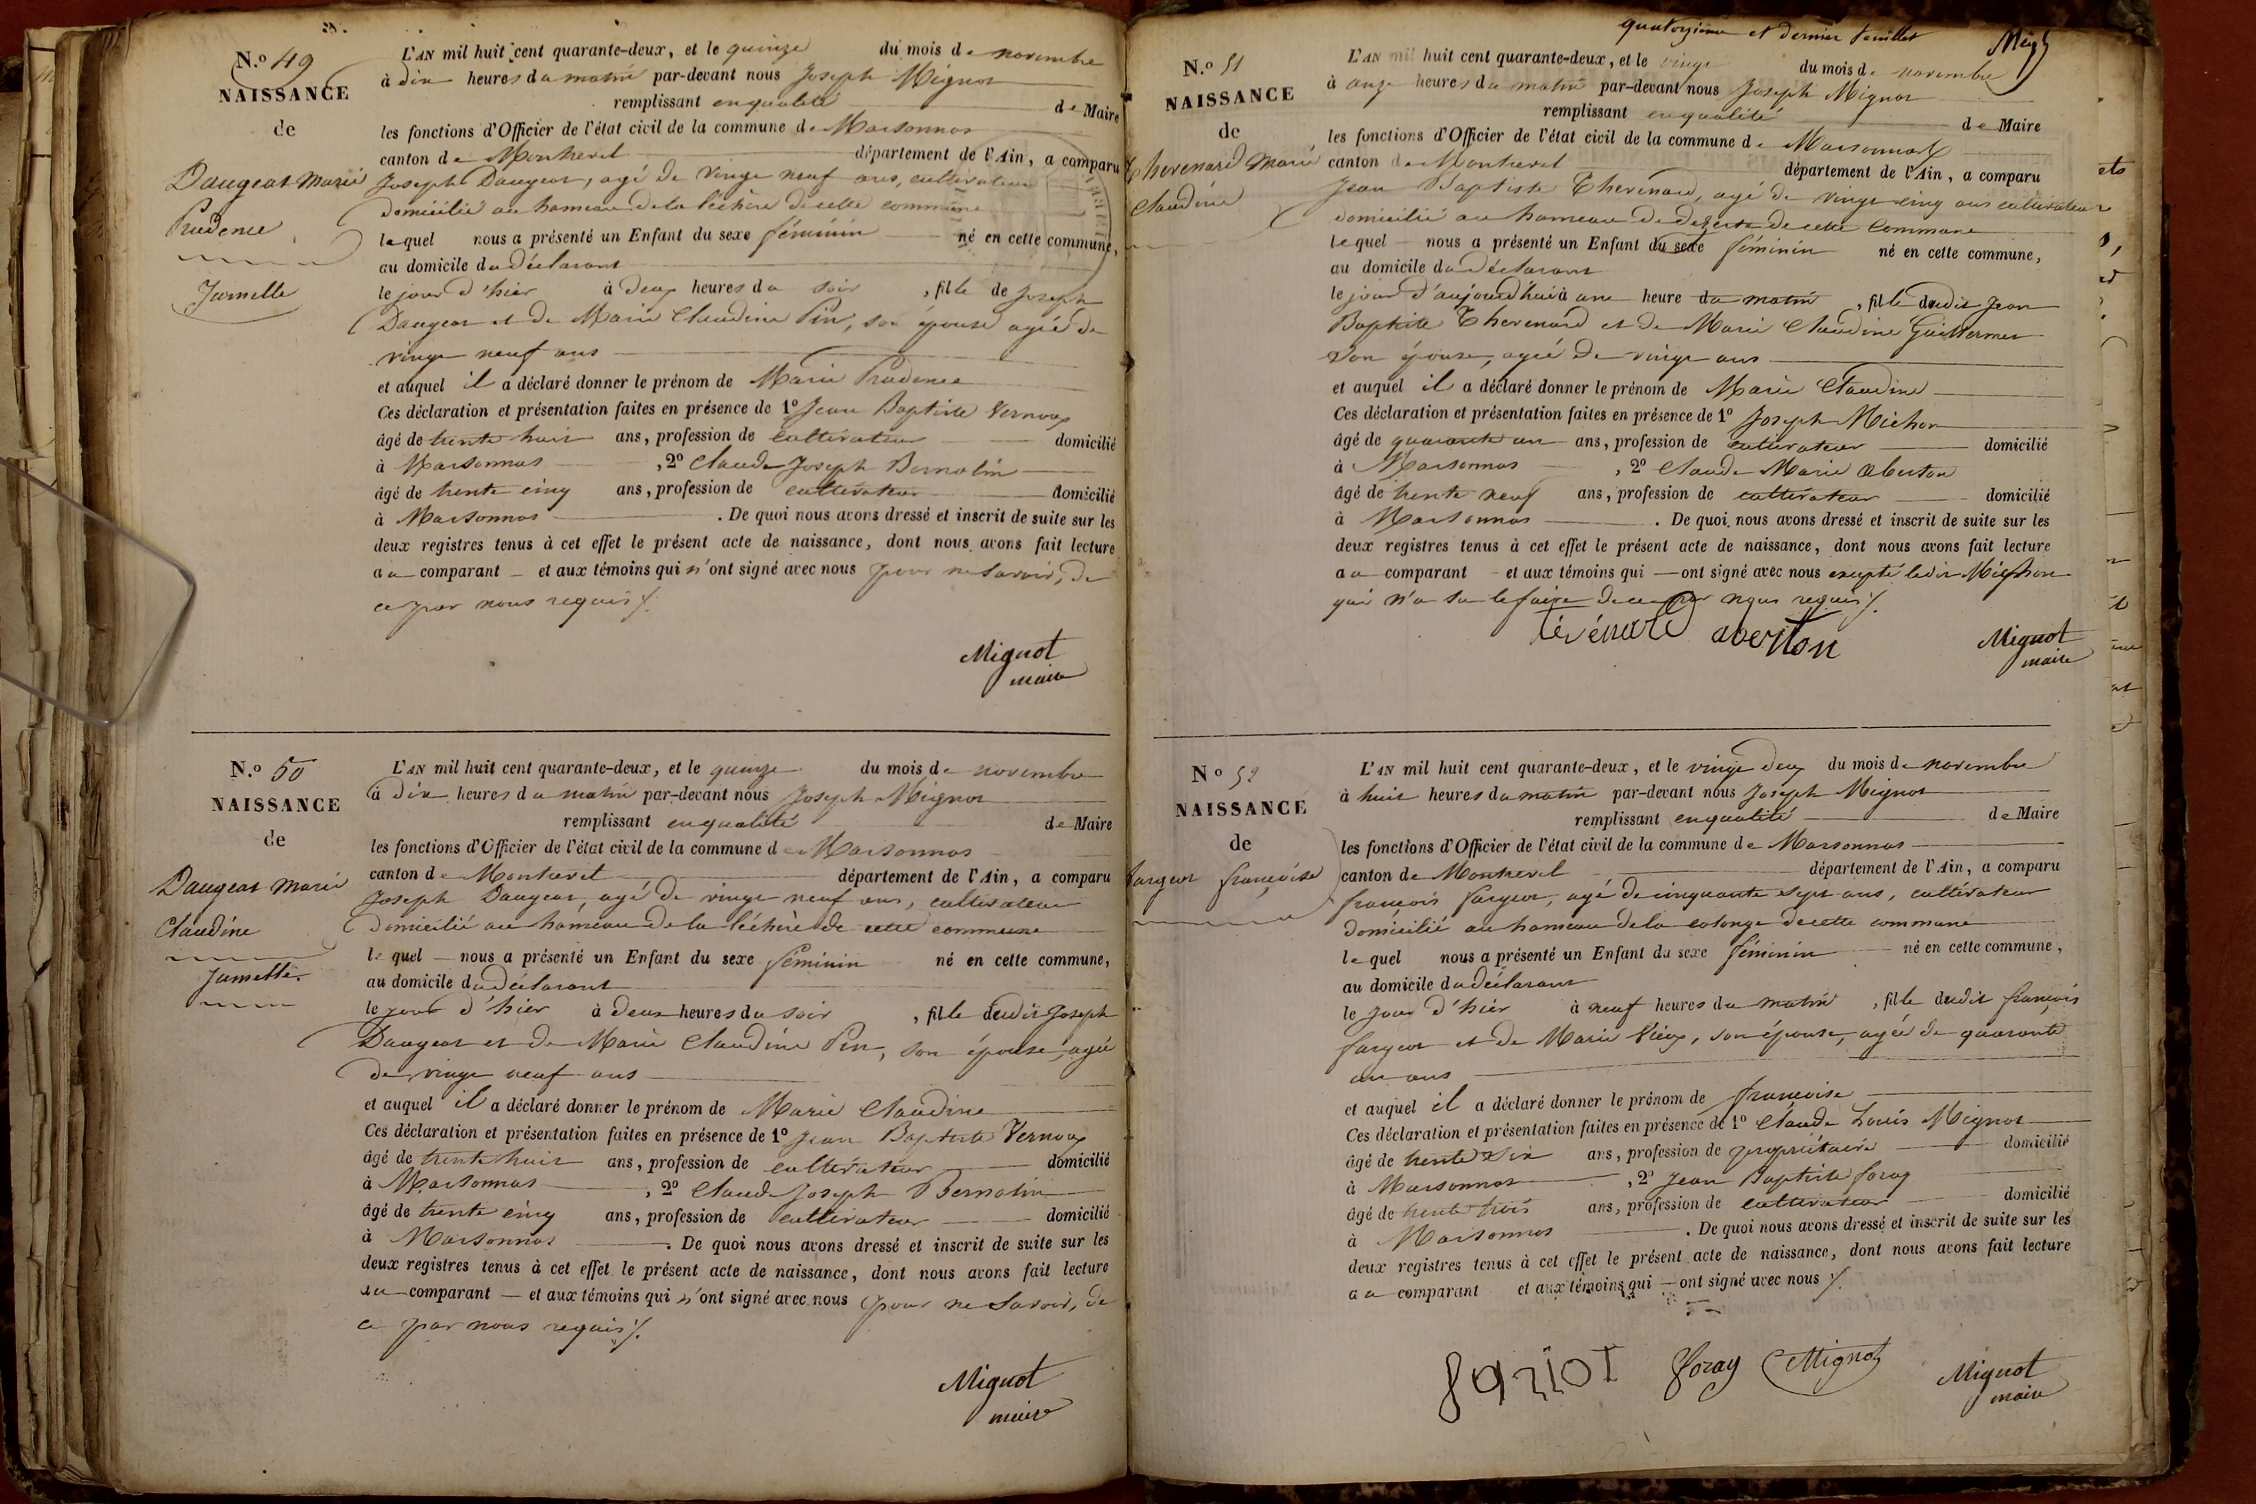 N.o 49
NAISSANCE
de
Daugeat Marie
Prudence
Jumelle
L'AN mil huit cent quarante-deux, et le quinze du mois de novembre
à dix heures du matin par-devant nous Joseph Mignot
remplissant en qualité de Maire
les fonctions d'Officier de l'état civil de la commune de Marsonnas
canton de Montrevel département de l'Ain, a comparu
Joseph Daugeat, agé de vingt neuf ans, cultivateur
domicilié au hameau de la léchère de cette commune
lequel nous a présenté un Enfant du sexe féminin né en cette commune,
au domicile du déclarant
le jour d'hier à deux heures du soir, fille de Joseph
Daugeat et de Marie Claudine Pin, son épouse agée de
vingt neuf ans
et auquel il a déclaré donner le prénom de Marie Prudence
Ces déclaration et présentation faites en présence de 1o Jean Baptiste Vernoux
âgé de trente huit ans, profession de cultivateur domicilié
à Marsonnas, 2o Claude Joseph Bernolin
âgé de trente cinq ans, profession de cultivateur domicilié
à Marsonnas. De quoi nous avons dressé et inscrit de suite sur les
deux registres tenus à cet effet le présent acte de naissance, dont nous avons fait lecture
au comparant et aux témoins qui n'ont signé avec nous pour ne savoir, de
ce par nous requis /.
Mignot
maire
N.o 50
NAISSANCE
de
Daugeat Marie
Claudine
Jumelle
L'AN mil huit cent quarante-deux, et le quinze du mois de novembre
à dix heures du matin par-devant nous Joseph Mignot
remplissant en qualité de Maire
les fonctions d'Officier de l'état civil de la commune de Marsonnas
canton de Montrevel département de l'Ain, a comparu
Joseph Daugeat, agé de vingt neuf ans, cultivateur
domicilié au hameau de la léchère de cette commune
lequel nous a présenté un Enfant du sexe féminin né en cette commune,
au domicile du déclarant
le jour d'hier à deux heures du soir, fille dudit Joseph
Daugeat et de Marie Claudine Pin, son épouse, agée
de vingt neuf ans
et auquel il a déclaré donner le prénom de Marie Claudine
Ces déclaration et présentation faites en présence de 1o Jean Baptiste Vernoux
âgé de trente huit ans, profession de cultivateur domicilié
à Marsonnas, 2o Claude Joseph Bernolin
âgé de trente cinq ans, profession de cultivateur domicilié
à Marsonnas. De quoi nous avons dressé et inscrit de suite sur les
deux registres tenus à cet effet le présent acte de naissance, dont nous avons fait lecture
au comparant et aux témoins qui n'ont signé avec nous pour ne savoir, de
ce par nous requis /.
Mignot
maire
quatorzième et dernier feuillet
N.o 51
NAISSANCE
de
Thevenard Marie
Claudine
L'AN mil huit cent quarante-deux, et le vingt du mois de novembre
à onze heures du matin par-devant nous Joseph Mignot
remplissant en qualité de Maire
les fonctions d'Officier de l'état civil de la commune de Marsonnas
canton de Montrevel département de l'Ain, a comparu
Jean Baptiste Thevenard, agé de vingt cinq ans cultivateur
domicilié au hameau de deserte de cette Commune
lequel nous a présenté un Enfant du sexe féminin né en cette commune,
au domicile du déclarant
le jour d'aujourd'hui à une heure du matin, fille dudit Jean
Baptiste Thevenard et de Marie Claudine Guillermet
son épouse, agée de vingt ans
et auquel il a déclaré donner le prénom de Marie Claudine
Ces déclaration et présentation faites en présence de 1o Joseph Michon
âgé de quarante un ans, profession de cultivateur domicilié
à Marsonnas, 2o Claude Marie Aberton
âgé de trente neuf ans, profession de cultivateur domicilié
à Marsonnas. De quoi nous avons dressé et inscrit de suite sur les
deux registres tenus à cet effet le présent acte de naissance, dont nous avons fait lecture
au comparant et aux témoins qui ont signé avec nous excepté ledit Michon
qui n'a su le faire de ce par nous requis /.
tévénard aberton
Mignot
maire
No 52
NAISSANCE
de
fargeot françoise
L'AN mil huit cent quarante-deux, et le vingt deux du mois de novembre
à huit heures du matin par-devant nous Joseph Mignot
remplissant en qualité de Maire
les fonctions d'Officier de l'état civil de la commune de Marsonnas
canton de Montrevel département de l'Ain, a comparu
françois fargeot, agé de cinquante sept ans, cultivateur
domicilié au hameau de la colonge de cette commune
lequel nous a présenté un Enfant du sexe féminin né en cette commune,
au domicile du déclarant
le jour d'hier à neuf heures du matin, fille dudit françois
fargeot et de Marie Vieux, son épouse, agée de quarante
un ans
et auquel il a déclaré donner le prénom de françoise
Ces déclaration et présentation faites en présence de 1o Claude Louis Mignot
âgé de trente six ans, profession de propriétaire domicilié
à Marsonnas, 2o Jean Baptiste foray
âgé de trente trois ans, profession de cultivateur domicilié
à Marsonnas. De quoi nous avons dressé et inscrit de suite sur les
deux registres tenus à cet effet le présent acte de naissance, dont nous avons fait lecture
au comparant et aux témoins qui ont signé avec nous /.
foray Mignot
Mignot
maire